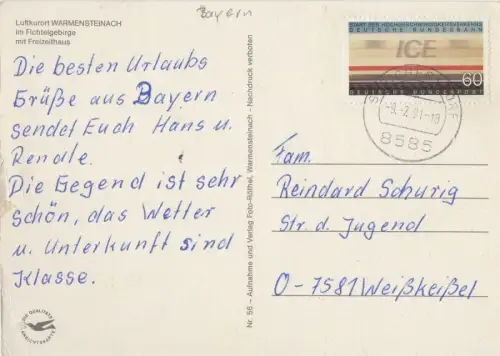 Bayern
Luftkurort WARMENSTEINACH
im Fichtelgebirge
mit Freizeithaus
Die besten Urlaubs
Grüße aus Bayern
sendet Euch Hans u.
Renate.
Die Gegend ist sehr
schön, das Wetter
u. Unterkunft sind
Klasse.
Nr. 56 – Aufnahme und Verlag Foto-Röthel, Warmensteinach - Nachdruck verboten
START DES HOCHGESCHWINDIGKEITSVERKEHRS
DEUTSCHE BUNDESBAHN
ICE
60
DEUTSCHE BUNDESPOST
-9.-7.91-18
8585
Fam.
Reindard Schurig
Str. d. Jugend
O-7581 Weißkeißel
DIE QUALITÄTS
ANSICHTSKARTE